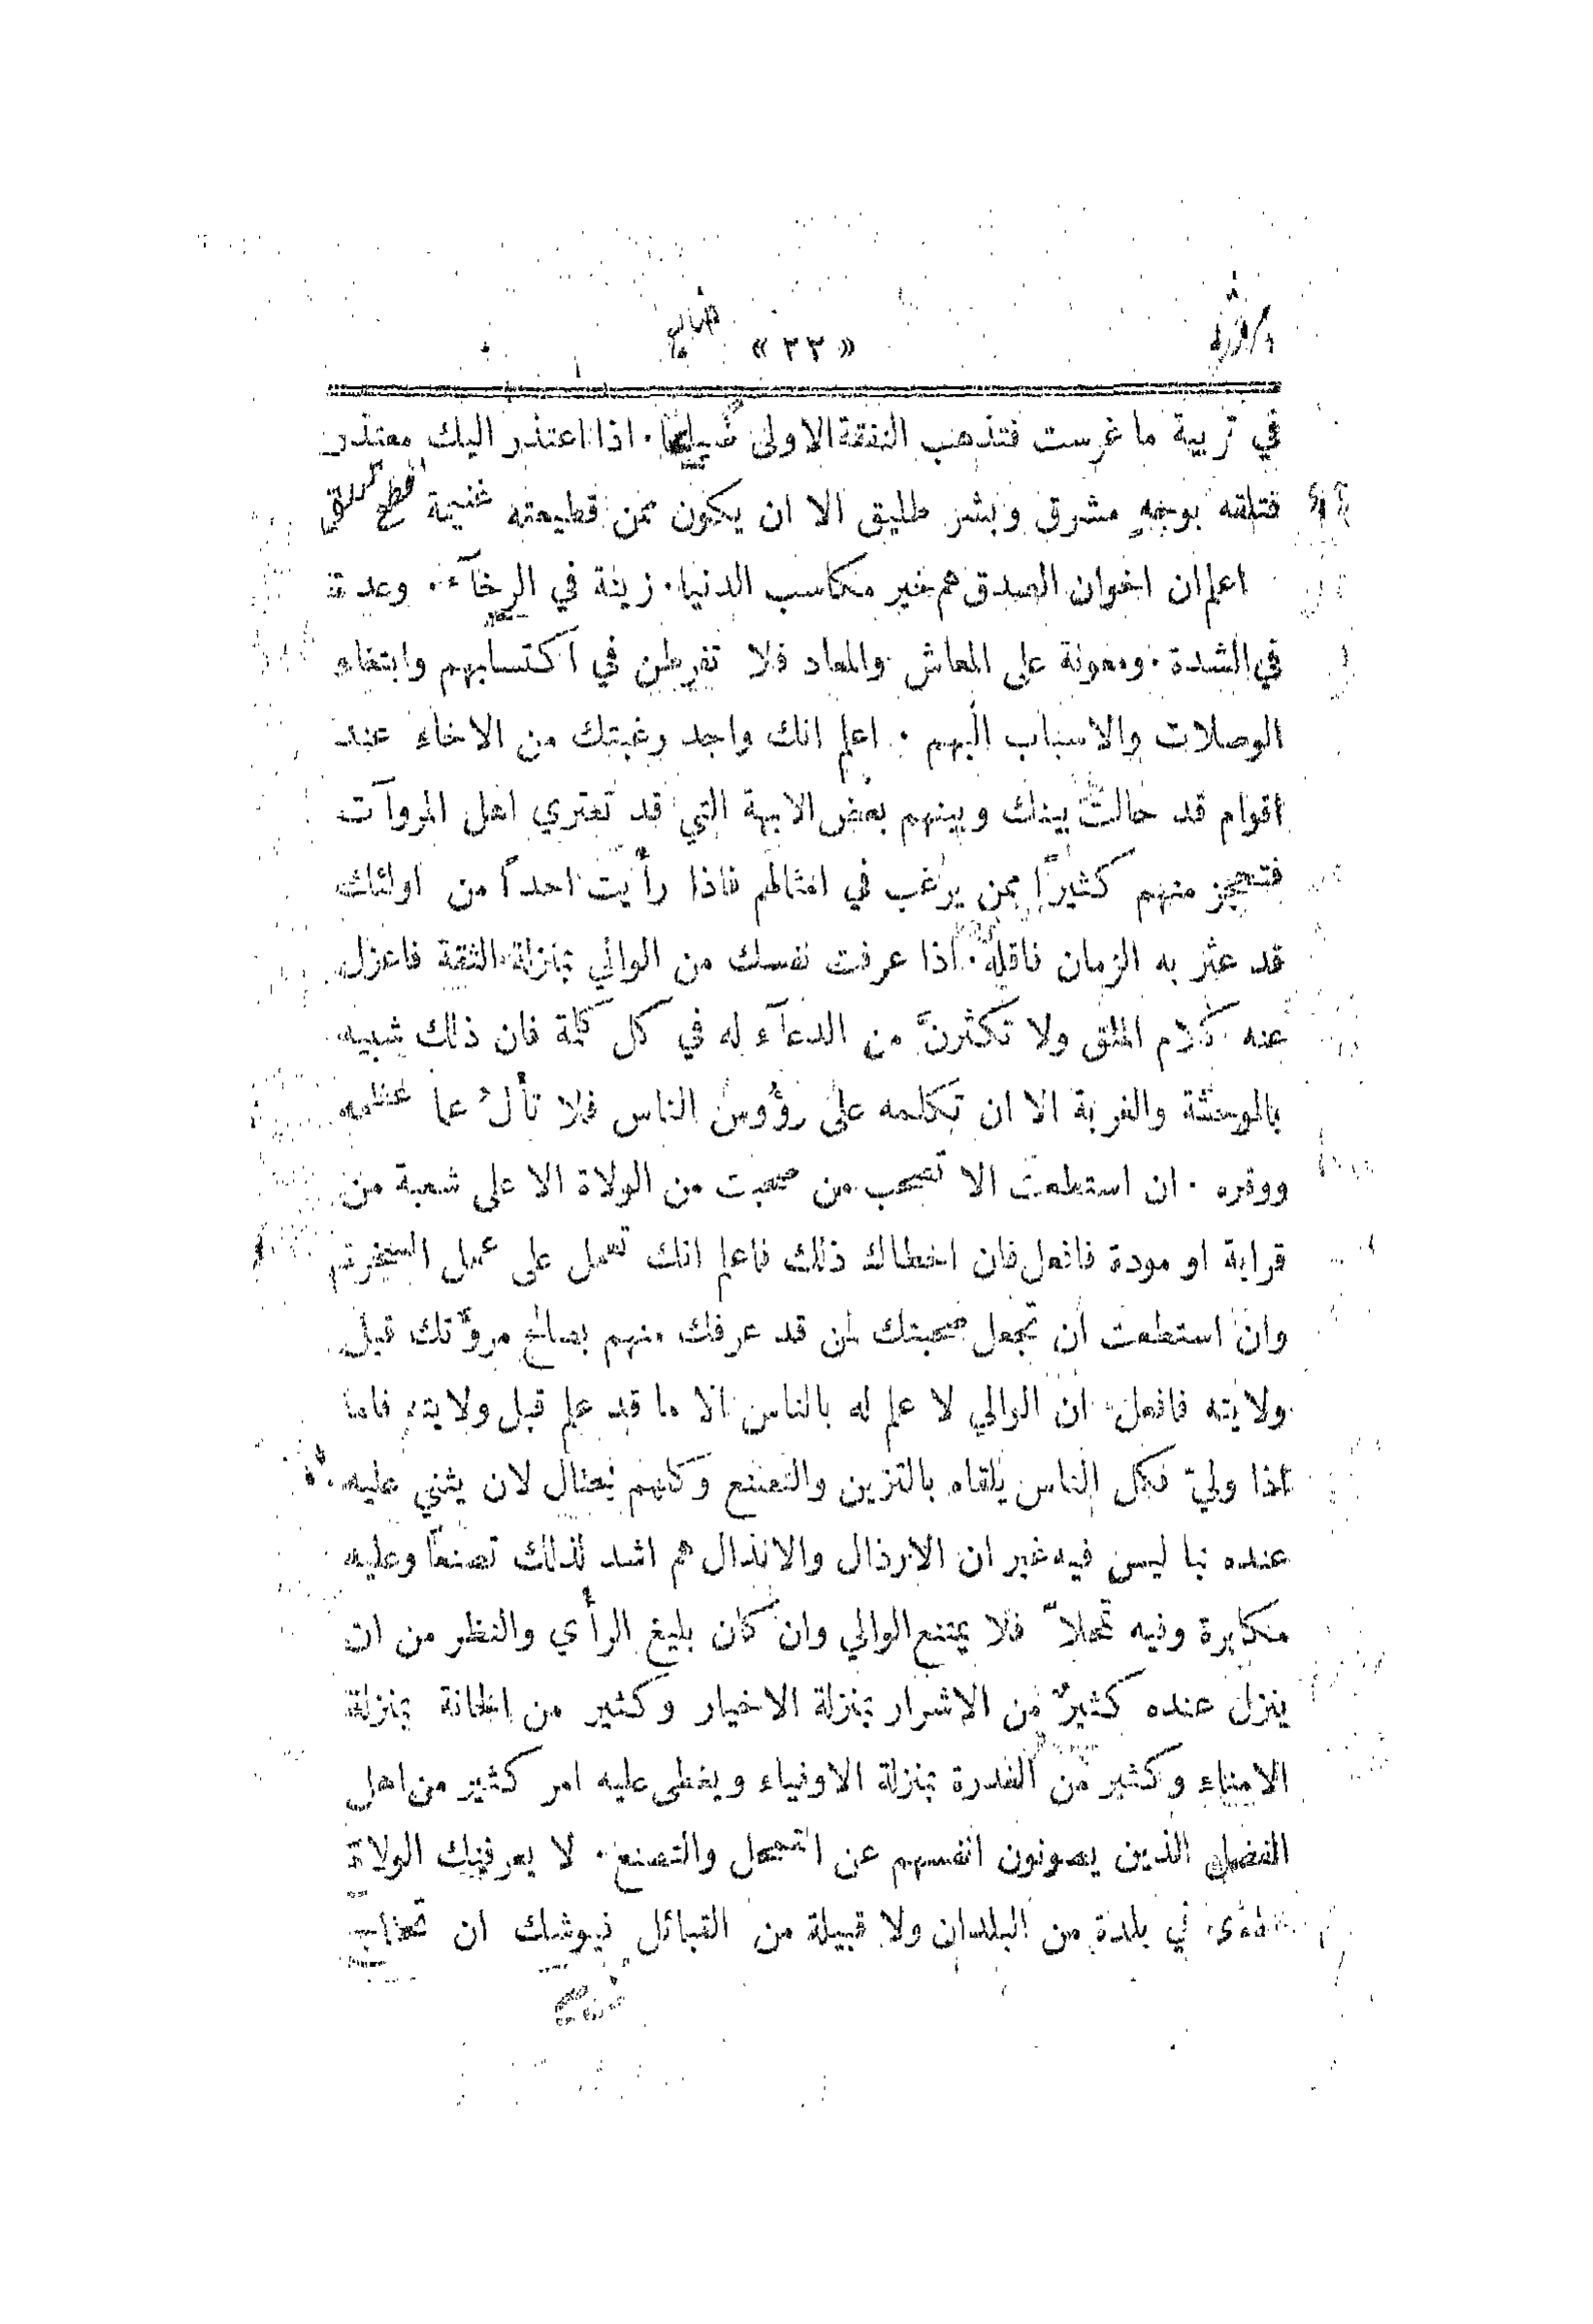 « ٣٣ »
في تربية ما غرست فتذهب النفقة الاولى ضياعا. اذا اعتذر اليك معتذر
فتلقه بوجهٍ مشرق وبشر طليق الا ان يكون ممن قطيعته غنيمة
اعلم ان اخوان الصدق هم خير مكاسب الدنيا. زينة في الرخآء. وعدة
في الشدة. ومعونة على المعاش والمعاد فلا تفرطن في اكتسابهم وابتغاء
الوصلات والاسباب اليهم . اعلم انك واجد رغبتك من الاخاء عند
اقوام قد حالت بينك وبينهم بعض الابهة التي قد تعتري اهل المروآت
فتحجز منهم كثيراً ممن يرغب في امثالهم فاذا رأيت احداً من اولئك
قد عثر به الزمان فاقله. اذا عرفت نفسك من الوالي بمنزلة الثقة فاعزل
عنه كلام الملق ولا تكثرنَّ من الدعآء له في كل كلمة فان ذلك شبيه
بالوحشة والغربة الا ان تكلمه على رؤوس الناس فلا تألُ عما عظمه
ووقره . ان استطعت الا تصحب من صحبت من الولاة الا على شعبة من
قرابة او مودة فافعل فان اخطاك ذلك فاعلم انك تعمل على عمل السخرة
وان استطعت ان تجعل صحبتك لمن قد عرفك منهم بصالح مروَّتك قبل
ولايته فافعل. ان الوالي لا علم له بالناس الا ما قد علم قبل ولايته فاما
اذا وليَ فكل الناس يلقاه بالتزين والتصنع وكلهم يحتال لان يثني عليه
عنده بما ليس فيه غير ان الارذال والانذال هم اشد لذلك تصنعاً وعليه
مكابرة وفيه تمحلاً فلا يمتنع الوالي وان كان بليغ الرأي والنظر من ان
ينزل عنده كثيرٌ من الاشرار بمنزلة الاخيار وكثير من الخانة بمنزلة
الامناء وكثير من الغدرة بمنزلة الاوفياء ويغطى عليه امر كثير من اهل
الفضل الذين يصونون انفسهم عن التمحل والتصنع. لا يعرفنك الولاة
في بلدة من البلدان ولا قبيلة من القبائل فيوشك ان